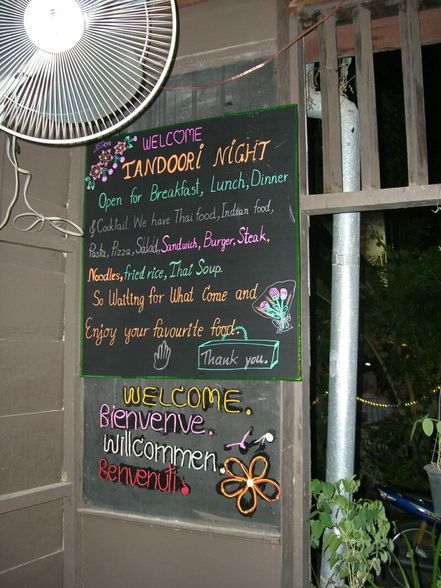 WELCOME
TANDOORi NiGHT
Open for Breakfast, Lunch, Dinner
& Cocktail. We have Thai food, Indian food,
Pasta, Pizza, Salad, Sandwich, Burger, Steak,
Noodles, fried rice, Thai Soup.
So Waiting for What Come and
Enjoy your favourite food.
Thank you.
WELCOME.
Bienvenve.
Willcommen.
Benvenuti.